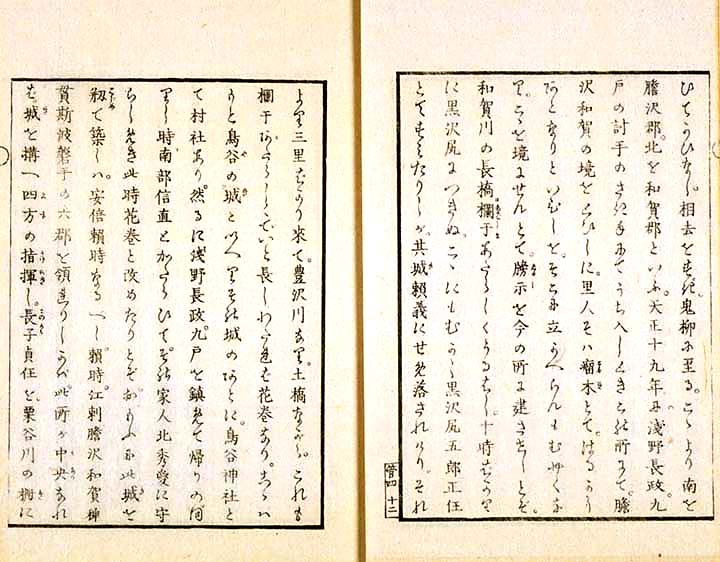 ひてかひなし。相去をすぎ。鬼柳に至る。こゝより南を
膽沢郡。北を和賀郡といふ。天正十九年に浅野長政。九
戸の討手のさきうち入しときこの所にて。膽
沢和賀の境をとひしに。里人そハ瘤木とて。はるかの
なりといひしを。そこに立らんもむ
り。こゝを境にせんとて。牓示を今の所に建しとぞ。
和賀川の長橋欄干あたらしくうるはし。十時ばかり
に黒沢尻につきぬ。こゝにもむかし黒沢尻五郎正任
とてすみたりしが。其城頼義にせめ落されけり。それ
四 十二
より三里ばかり来て。豊沢川あり。土橋ながら。これも
欄干あたらしくていと長しわたれば花巻なり。こゝハ
もと鳥谷の城といへりその城のあとに。鳥谷神社と
て村社あり然るに浅野長政。九戸を鎮めて帰りの
りし時南部信直とかたらひて。その家人北秀愛に守
らしめき此時花巻と改めたりとぞおもふに此城を
剏て築しハ。安倍頼時なるべし頼時。江刺膽沢和賀稗
貫斯波磐手の六郡を領りしかば此所が中央なれ
ば城を搆へ四方の指揮し。長子貞任を。栗谷川の柵に